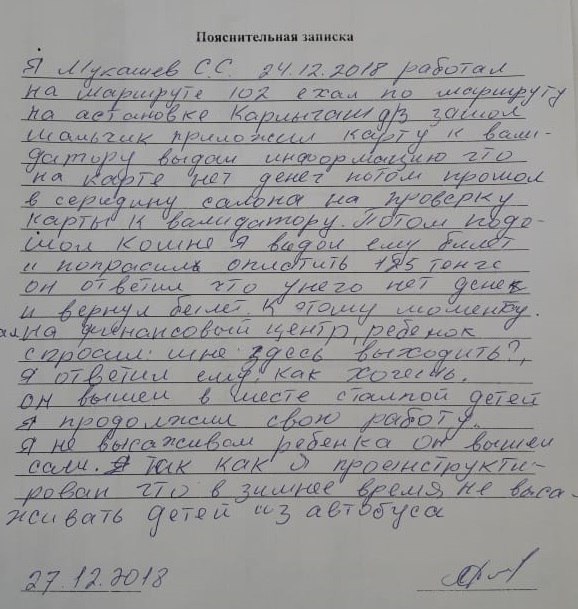 Пояснительная записка
Я Мукашев С.С. 24.12.2018 работал
на маршруте 102 ехал по маршруту
на астановке Карлыгаш д/з зашол
мальчик приложил карту к вали-
датору выдал информацию что
на карте нет денег потом прошол
в середину салона на проверку
карты к валидатору. Потом подо-
шол комне я выдал ему билет
и попрасил оплатить 185 тенге
он ответил что унего нет денек
и вернул билет. К этому моменту.
на финансовый центр, ребенок
спросил: мне здесь выходить?,
Я ответил ему: как хочешь.
он вышел в месте с толпой детей
я продолжил свою работу.
Я не высаживал ребенка он вышел
сам. Я так как я проинструкти-
рован что в зимнее время не выса-
живать детей из автобуса
27.12.2018